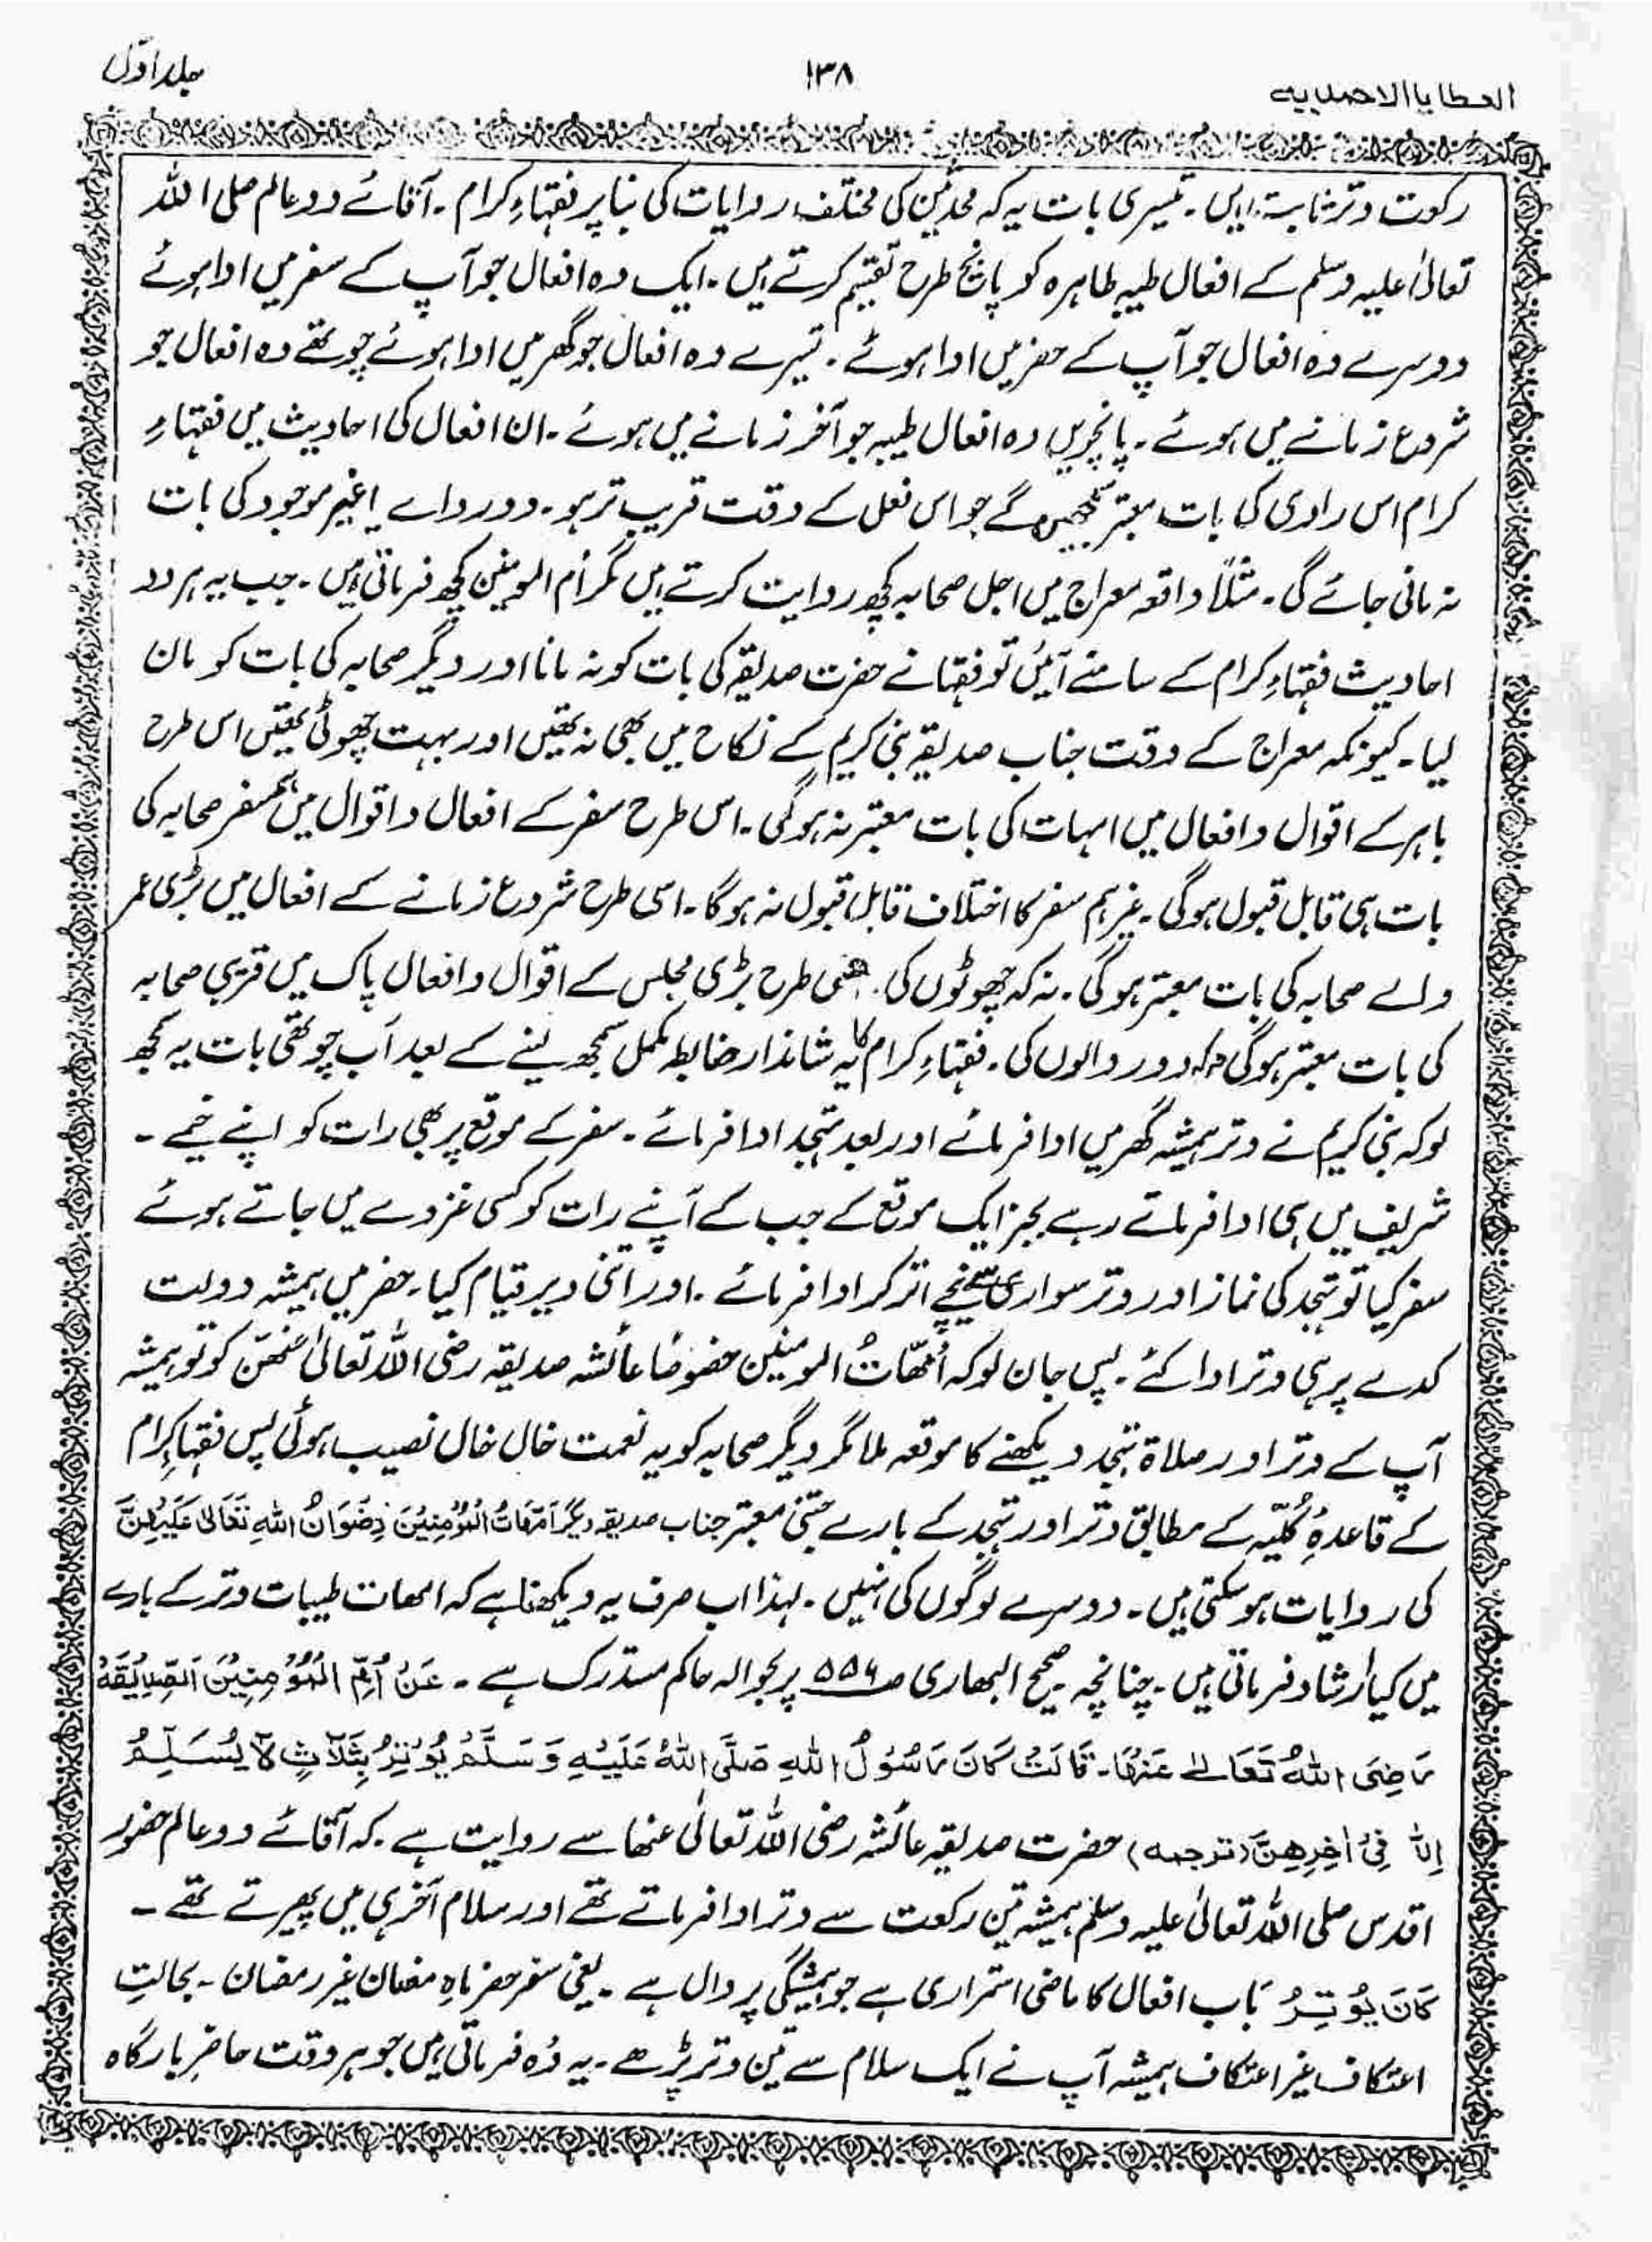 العطایا الاحمدیہ
۱۳۸
جلد اوّل
رکوت وتر ثابت ہیں۔ تیسری بات یہ کہ محدثین کی مختلف روایات کی بنا پر فقہاءِ کرام۔ آقائے دو عالم صلی اللہ
تعالیٰ علیہ وسلم کے افعال طیبہ طاہرہ کو پانچ طرح تقسیم کرتے ہیں۔ ایک وہ افعال جو آپ کے سفر میں ادا ہوئے
دوسرے وہ افعال جو آپ کے حضر میں ادا ہوئے۔ تیسرے وہ افعال جو گھر میں ادا ہوئے چوتھے وہ افعال جو
شروع زمانے میں ہوئے۔ پانچویں وہ افعال طیبہ جو آخر زمانے میں ہوئے۔ ان افعال کی احادیث میں فقہاءِ
کرام اس راوی کی بات معتبر سمجھیں گے جو اس فعل کے وقت قریب تر ہو۔ دور والے یا غیر موجود کی بات
نہ مانی جائے گی۔ مثلاً واقعہ معراج میں اجل صحابہ کچھ روایت کرتے ہیں مگر اُم المومنین کچھ فرماتی ہیں۔ جب یہ ہر دو
احادیث فقہاءِ کرام کے سامنے آئیں تو فقہا نے حضرت صدیقہ کی بات کو نہ مانا اور دیگر صحابہ کی بات کو مان
لیا۔ کیونکہ معراج کے وقت جناب صدیقہ نبی کریم کے نکاح میں بھی نہ تھیں اور بہت چھوٹی تھیں اس طرح
باہر کے اقوال و افعال میں امہات کی بات معتبر نہ ہوگی۔ اس طرح سفر کے افعال و اقوال میں ہمسفر صحابہ کی
بات ہی قابل قبول ہوگی۔ غیر ہم سفر کا اختلاف قابل قبول نہ ہوگا۔ اسی طرح شروع زمانے کے افعال میں بڑی عمر
والے صحابہ کی بات معتبر ہوگی۔ نہ کہ چھوٹوں کی۔ طرح بڑی مجلس کے اقوال و افعال پاک میں قریبی صحابہ
کی بات معتبر ہوگی دور والوں کی۔ فقہاءِ کرام کا یہ شاندار ضابطہ مکمل سمجھ لینے کے بعد اَب چوتھی بات یہ سمجھ
لو کہ نبی کریم نے وتر ہمیشہ گھر میں ادا فرمائے اور بعد تہجد ادا فرمائے۔ سفر کے موقع پر بھی رات کو اپنے خیمے۔
شریف میں ہی ادا فرماتے رہے بجز ایک موقع کے جب کے آپنے رات کو کسی غزوے میں جاتے ہوئے
سفر کیا تو تہجد کی نماز اور وتر سواری سے نیچے اتر کر ادا فرمائے۔ اور اتنی دیر قیام کیا۔ حضر میں ہمیشہ دولت
کدے پر ہی وتر ادا کئے۔ پس جان لو کہ اُمّہاتُ المومنین خصوصًا عائشہ صدیقہ رضی اللہ تعالیٰ عنہن کو تو ہمیشہ
آپ کے وتر اور صلاۃ تہجد دیکھنے کا موقعہ ملا مگر دیگر صحابہ کو یہ نعمت خال خال نصیب ہوئی پس فقہاءِ کرام
کے قاعدۂِ کُلیّہ کے مطابق وتر اور تہجد کے بارے جتنی معتبر جناب صدیقہ دیگر اُمَّہَاتُ الْمُؤْمِنِیْنَ رِضْوَانُ اللہِ تَعَالیٰ عَلَیْہِنَّ
کی روایات ہو سکتی ہیں۔ دوسرے لوگوں کی نہیں۔ لہذا اب صرف یہ دیکھنا ہے کہ امھات طیبات وتر کے بارے
میں کیا اُرشاد فرماتی ہیں۔ چنانچہ صحیح البھاری صـ۵۵۶ پر بحوالہ حاکم مستدرک ہے۔ عَنْ اُمِّ الْمُؤْمِنِیْنَ الصِّدِّیْقَۃِ
رَضِیَ اللہُ تَعَالیٰ عَنْہَا۔ قَالَتْ کَانَ رَسُوْلُ اللہِ صَلَّی اللہُ عَلَیْہِ وَسَلَّمَ یُوْتِرُ بِثَلَاثٍ لَا یُسَلِّمُ
اِلَّا فِیْ اٰخِرِھِنَّ (ترجمہ) حضرت صدیقہ عائشہ رضی اللہ تعالٰی عنھا سے روایت ہے۔ کہ آقائے دو عالم حضور
اقدس صلی اللہ تعالیٰ علیہ وسلم ہمیشہ تین رکعت سے وتر ادا فرماتے تھے اور سلام آخری میں پھیرتے تھے۔
کَانَ یُوْتِرُ بَاب افعال کا ماضی استمراری ہے جو ہمیشگی پر دال ہے۔ یعنی سفر حضر ماہِ رمضان غیر رمضان۔ بحالتِ
اعتکاف غیر اعتکاف ہمیشہ آپ نے ایک سلام سے تین وتر پڑھے۔ یہ وُہ فرماتی ہیں جو ہر وقت حاضرِ بارگاہ